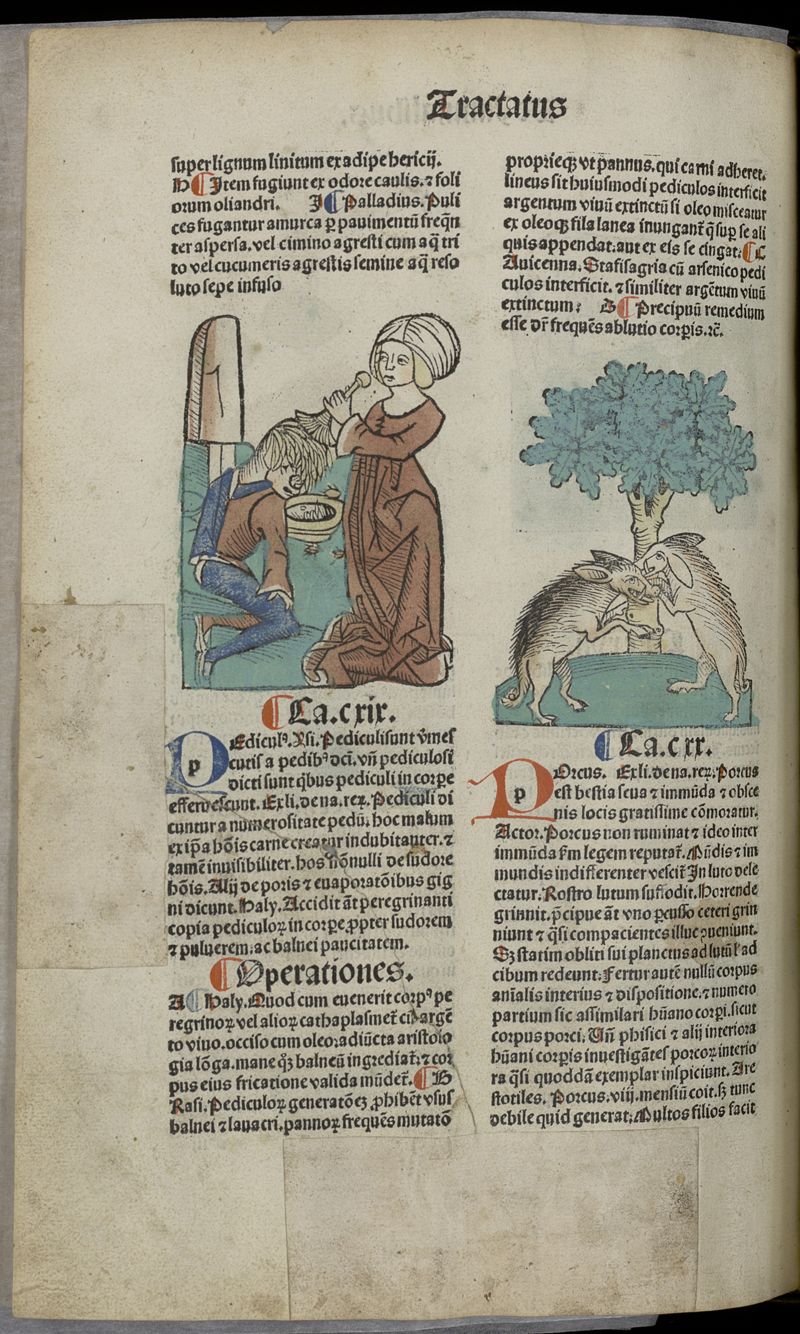 Tractatus
super lignum linitum ex adipe hericij.
H ¶ Item fugiunt ex odore caulis. ⁊ foli
orum oliandri. I ¶ Palladius. Puli
ces fugantur amurca ꝑ pauimentū freq̄n
ter aspersa. vel cimino agresti cum aq̄ tri
to vel cucumeris agrestis semine aq̄ reso
luto sepe infuso
¶ Ca. cxix.
PEdiculꝰ. Ysi. Pediculi sunt v̓mes
cutis a pedibꝰ dcī. vn̄ pediculosi
dicti sunt q̄bus pediculi in corꝑe
efferuescunt. Ex li. de na. reꝝ. Pediculi di
cuntur a numerositate pedū. hoc malum
ex ip̄a hōis carne creatur indubitanter. ⁊
tamē inuisibiliter. hos nōnulli de sudore
hōis. Alij de poris ⁊ euaporatōibus gig
ni dicunt. Haly. Accidit āt peregrinanti
copia pediculoꝝ in corꝑe ꝓpter sudorem
⁊ puluerem. ac balnei paucitatem.
¶ Operationes.
A ¶ Haly. Quod cum euenerit corpꝰ pe
regrinoꝝ vel alioꝝ cathaplasmet̄ cū argē
to viuo. occiso cum oleo. adiūcta aristolo
gia lōga. mane qꝫ balneū ingrediat̄. ⁊ cor
pus eius fricatione valida mūdet̄. ¶ B
Rasi. Pediculoꝝ generatōeꝫ ꝓhibēt vsus
balnei ⁊ lauacri. pannoꝝ frequēs mutatō
proprieqꝫ vt pannus. qui carni adheret.
lineus sit huiusmodi pediculos interficit
argentum viuū extinctū si oleo misceatur
ex oleoqꝫ fila lanea inungant̄ q̄ suꝑ se ali
quis appendat. aut ex eis se cingat. ¶ C
Auicenna. Stafisagria cū arsenico pedi
culos interficit. ⁊ similiter argētum viuū
extinctum. D ¶ Precipuū remedium
esse dr̄ frequēs ablutio corꝑis. ⁊c̄.
¶ Ca. cxx.
POrcus. Ex li. de na. reꝝ. Porcus
est bestia seua ⁊ immūda ⁊ obsce
nis locis gratissime cōmoratur.
Actor. Porcus non ruminat ⁊ ideo inter
immūda s̄m legem reputat̄. Mūdis ⁊ im
mundis indifferenter vescit̄ In luto dele
ctatur. Rostro lutum suffodit. Horrende
grinnit. p̄cipue āt vno ꝑcusso ceteri grin
niunt ⁊ q̄si compacientes illuc ꝯueniunt.
Sꝫ statim obliti sui planctus ad lutū l̓ ad
cibum redeunt. Fertur autē nullū corpus
aīalis interius ⁊ dispositione. ⁊ numero
partium sic assimilari hūano corꝑi. sicut
corpus porci. Vn̄ phisici ⁊ alij interiora
hūani corꝑis inuestigātes porcoꝝ interio
ra q̄si quoddā exemplar inspiciunt. Are
stotiles. Porcus. viij. mensiū coit. sꝫ tunc
debile quid generat. Multos filios facit